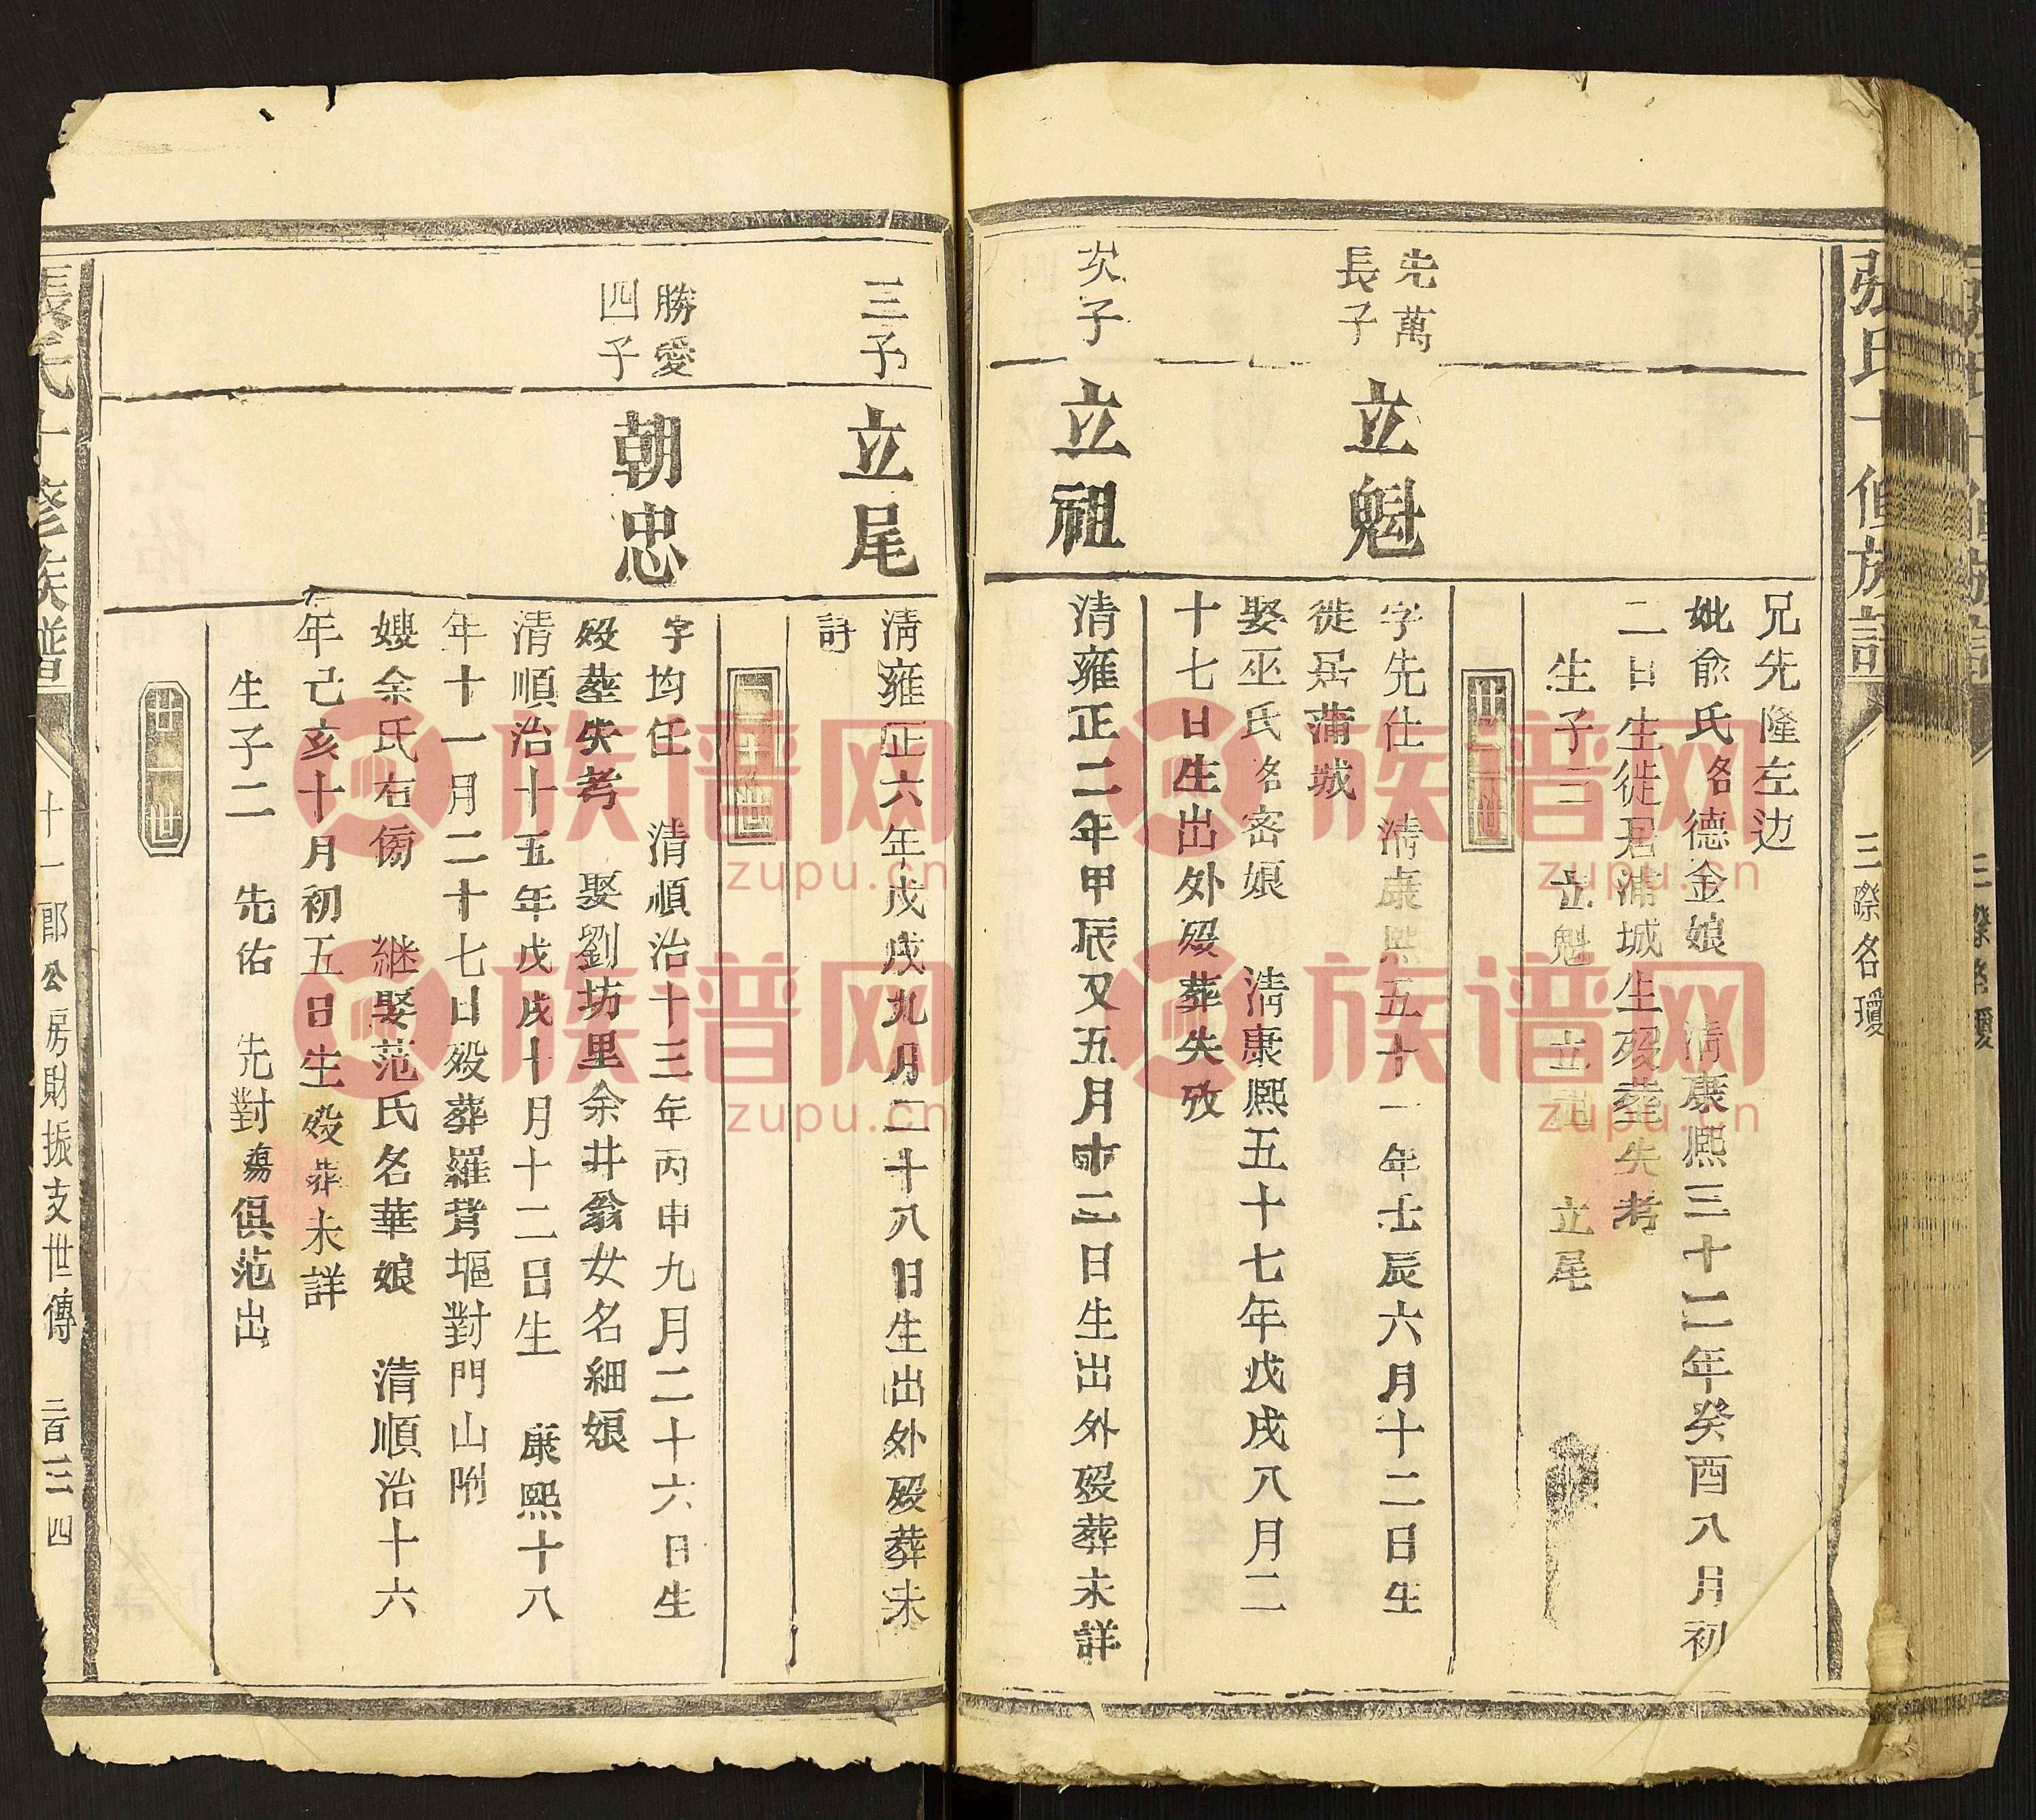 張氏十修族譜
三際名瓊
兄先隆左边
妣俞氏名德金娘　清康熙三十二年癸酉八月初
二日生徙居浦城生殁葬失考
生子三　立魁　立祖　立尾
廿二世
先萬
長子
立魁
字先仕　清康熙五十一年壬辰六月十二日生
徙居蒲城
娶巫氏名密娘　清康熙五十七年戊戌八月二
十七日生出外殁葬失攷
次子
立祖
清雍正二年甲辰又五月十二日生出外殁葬未詳
三子
立尾
清雍正六年戊戌九月二十八日生出外殁葬未
詳
二十世
勝愛
四子
朝忠
字均任　清順治十三年丙申九月二十六日生
殁葬失考　娶劉坊里余井翁女名細娘
清順治十五年戊戌十月十二日生　康熙十八
年十一月二十七日殁葬羅背塸對門山附
嫂余氏右傍　継娶范氏名華娘　清順治十六
年己亥十月初五日生殁葬未詳
生子二　先佑　先對殤俱范出
廿一世
張氏十修族譜
十一郎公房財振支世傳
二百三四
族谱网
zupu.cn
族谱网
zupu.cn
族谱网
zupu.cn
族谱网
zupu.cn